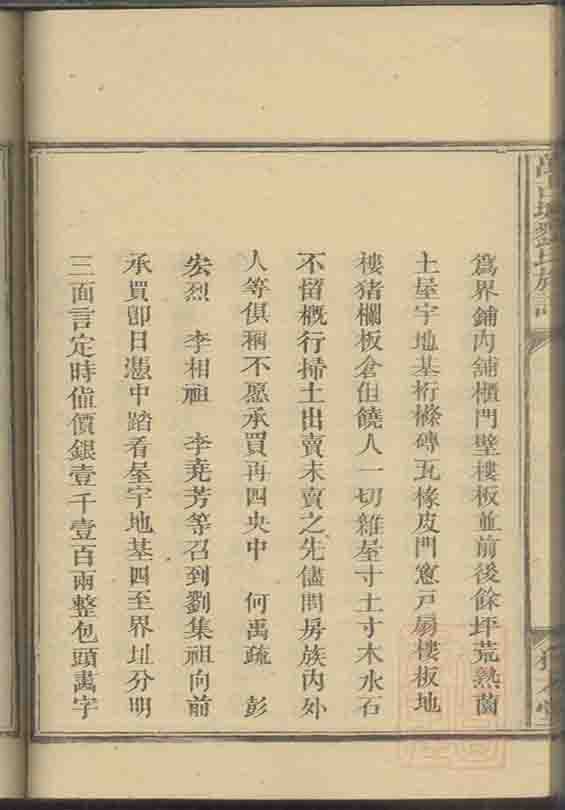 為界鋪內舖櫃門壁樓板並前後餘坪荒熟菌
土屋宇地基桁條磚瓦椽皮門窻戶扇樓板地
樓猪欄板倉但饒人一切雜屋寸土寸木水石
不留概行掃土出賣未賣之先儘問房族內外
人等俱稱不愿承買再四央中　何禹疏　彭
宏烈　李相祖　李堯芳等召到劉集祖向前
承買卽日憑中踏看屋宇地基四至界址分明
三面言定時值價銀壹千壹百兩整包頭畵字